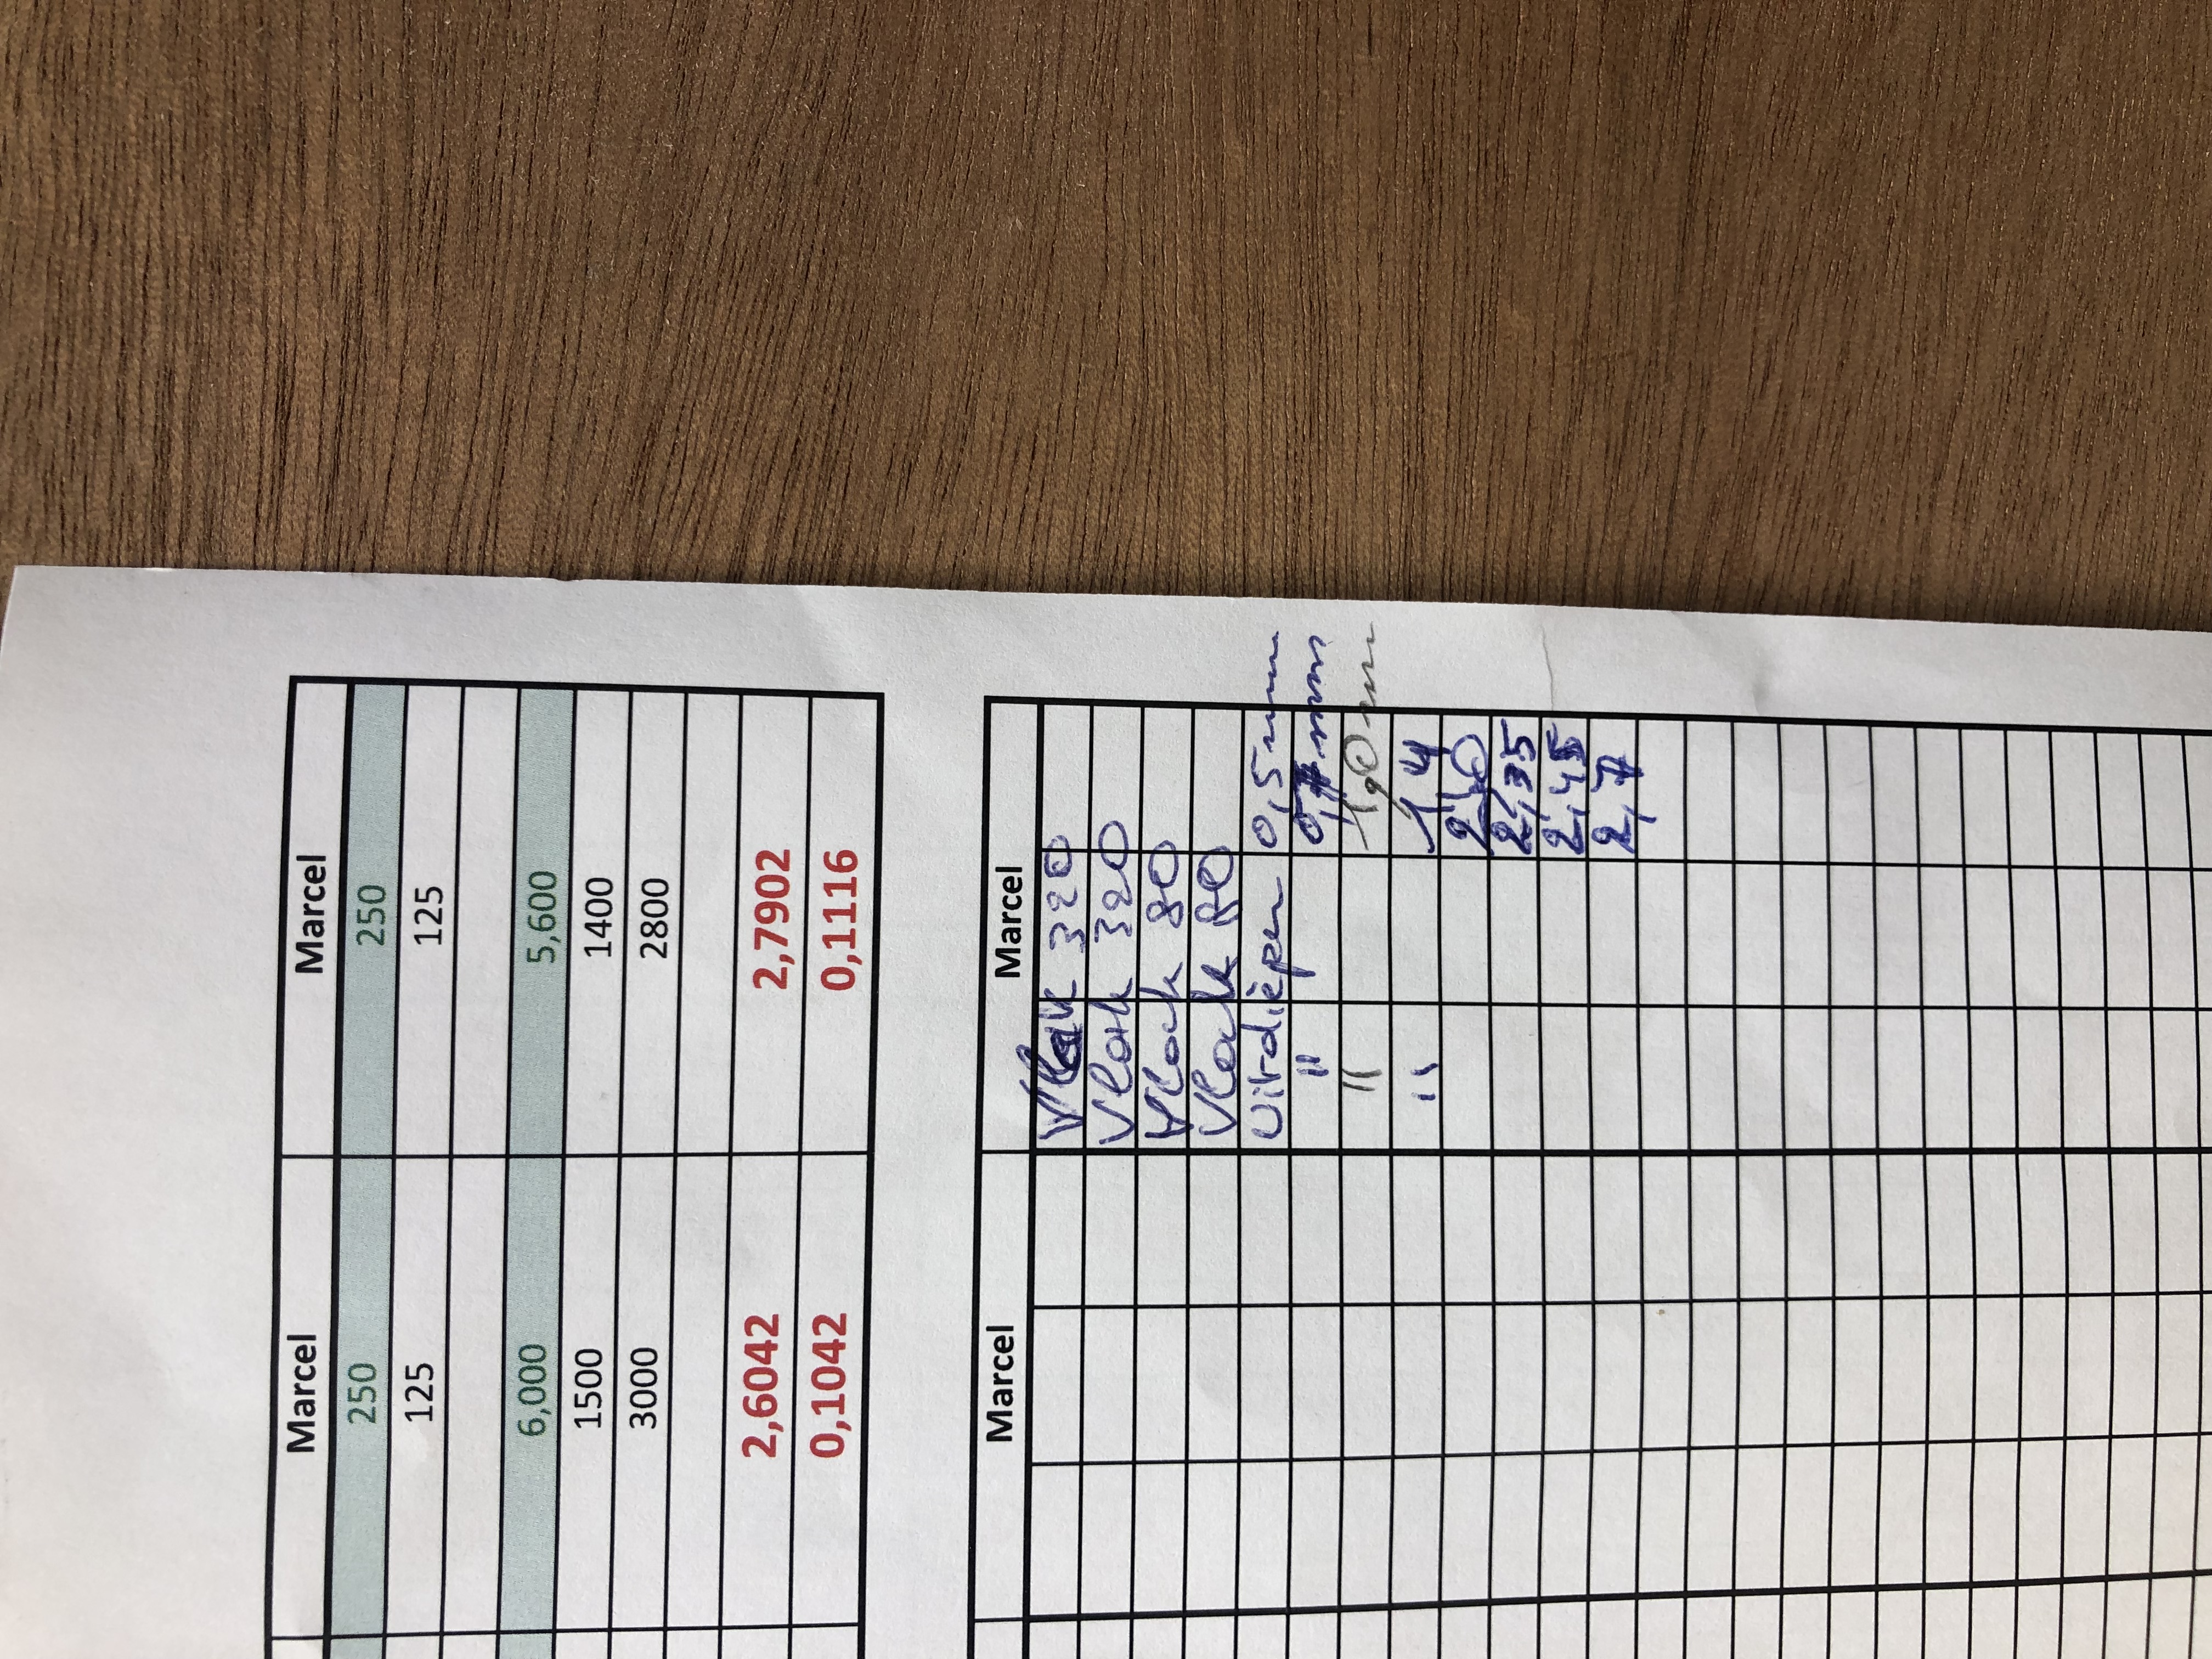 Marcel Marcel
250 250
125 125
6,000 5,600
1500 1400
3000 2800
2,6042 2,7902
0,1042 0,1116
Marcel Marcel
Vlak 320
Vlak 320
Vlack 80
Vlack 80
Uitdiepen 0,5 mm
" 0,7 mm
" 1,0 mm
" 1,4
2,0
2,35
2,45
2,7